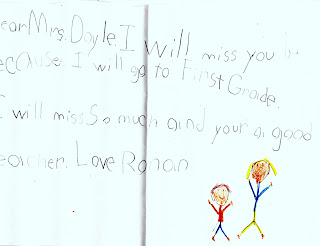 earMrs. Doyle. I will miss you b
ecause I will go to First Grade.
I will miss So much and your a good
eacher. Love Ronan